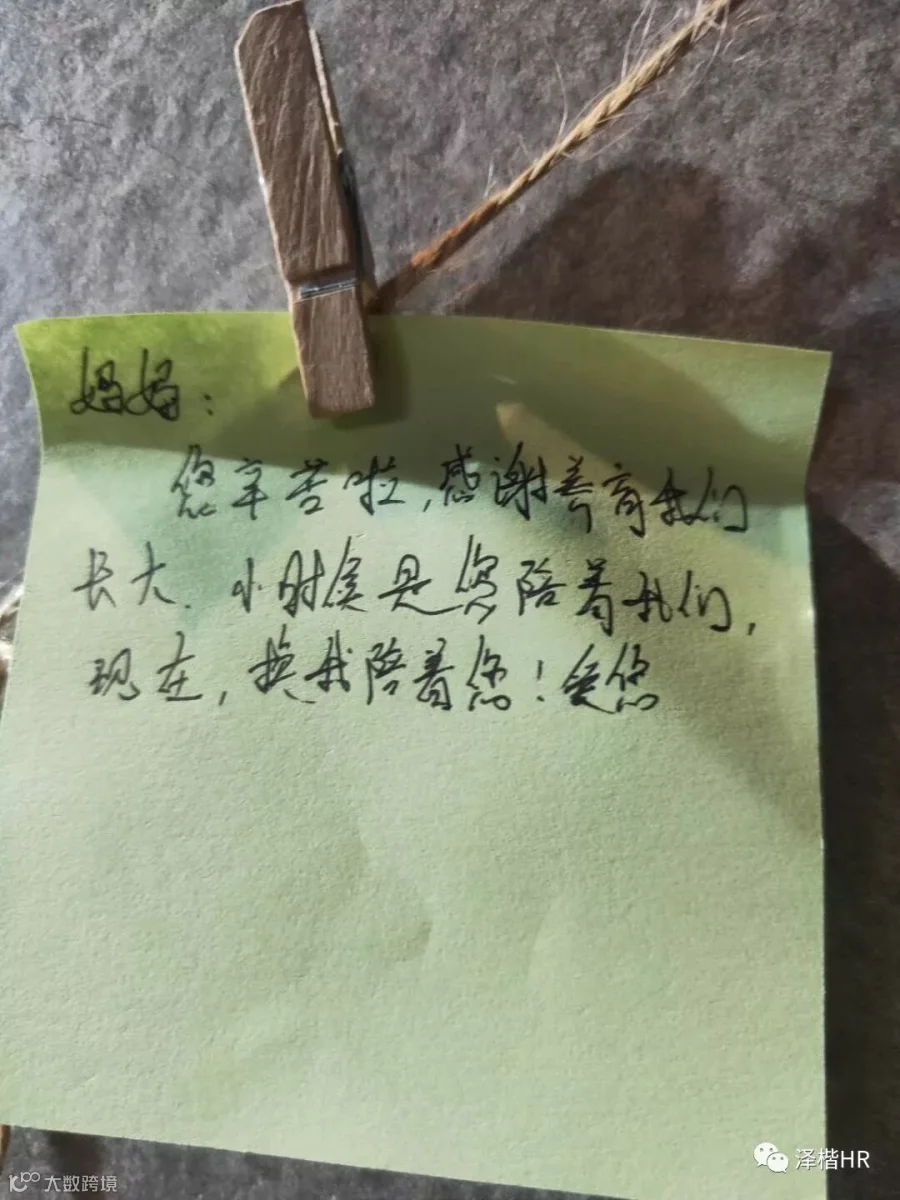 妈妈：
您辛苦啦，感谢养育我们
长大．小时候是您陪着我们，
现在，换我陪着您！爱您
泽楷HR
大数跨境